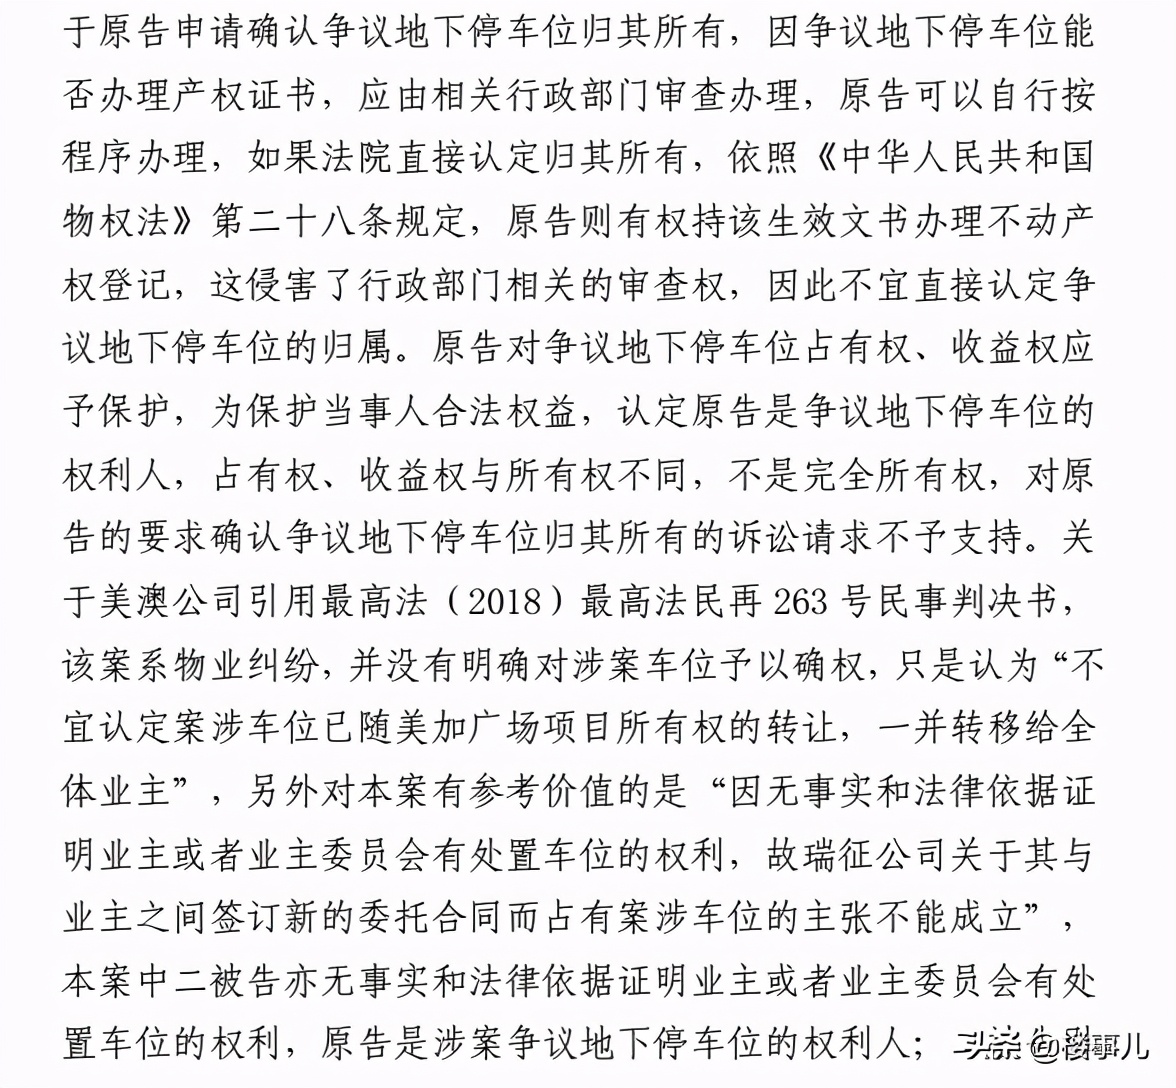 于原告申请确认争议地下停车位归其所有，因争议地下停车位能
否办理产权证书，应由相关行政部门审查办理，原告可以自行按
程序办理，如果法院直接认定归其所有，依照《中华人民共和国
物权法》第二十八条规定，原告则有权持该生效文书办理不动产
权登记，这侵害了行政部门相关的审查权，因此不宜直接认定争
议地下停车位的归属。原告对争议地下停车位占有权、收益权应
予保护，为保护当事人合法权益，认定原告是争议地下停车位的
权利人，占有权、收益权与所有权不同，不是完全所有权，对原
告的要求确认争议地下停车位归其所有的诉讼请求不予支持。关
于美澳公司引用最高法（2018）最高法民再 263 号民事判决书，
该案系物业纠纷，并没有明确对涉案车位予以确权，只是认为“不
宜认定案涉车位已随美加广场项目所有权的转让，一并转移给全
体业主”，另外对本案有参考价值的是“因无事实和法律依据证
明业主或者业主委员会有处置车位的权利，故瑞征公司关于其与
业主之间签订新的委托合同而占有案涉车位的主张不能成立”，
本案中二被告亦无事实和法律依据证明业主或者业主委员会有处
置车位的权利，原告是涉案争议地下停车位的权利人；
头条 @楼事儿